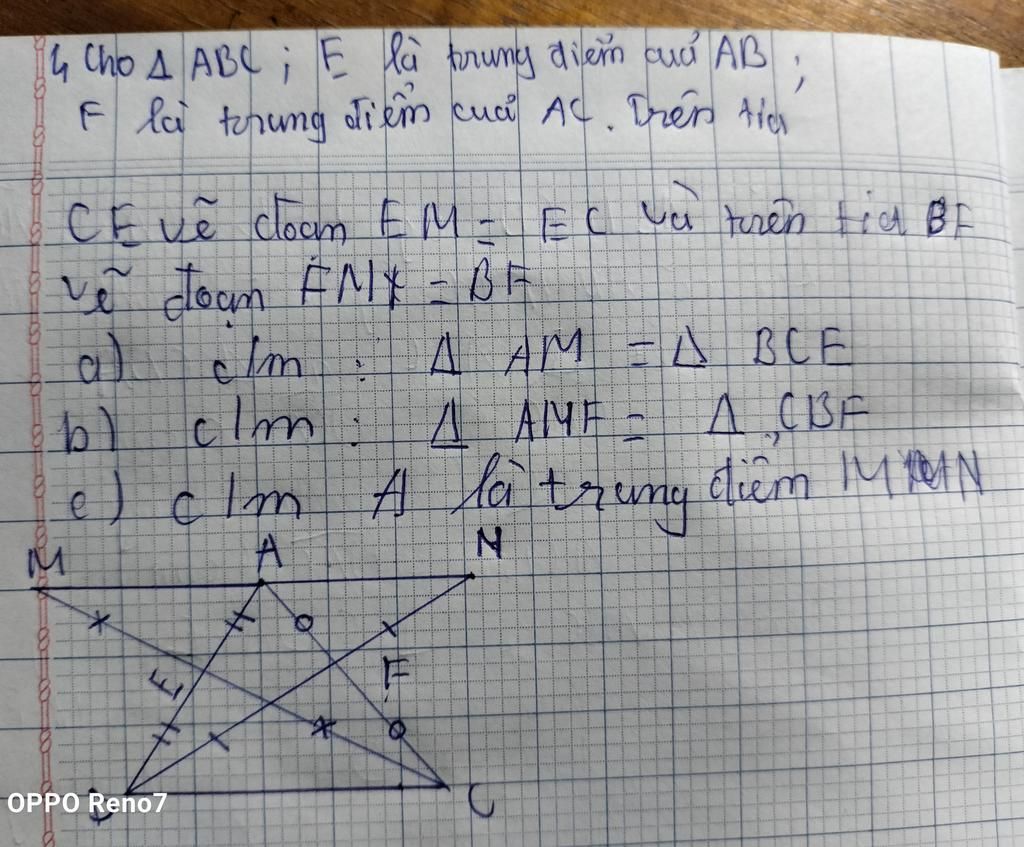 4, Cho Δ ABC ; E là trung điểm cuả AB ;
F là trung điểm cuả AC. Trên tia
CE vẽ đoạn EM = EC và trên tia BF
vẽ đoạn FN = BF
a) c/m : Δ AM = Δ BCE
b) c/m : Δ AMF = Δ CBF
c) c/m A là trung điểm M N
M A N
E F
C
OPPO Reno7